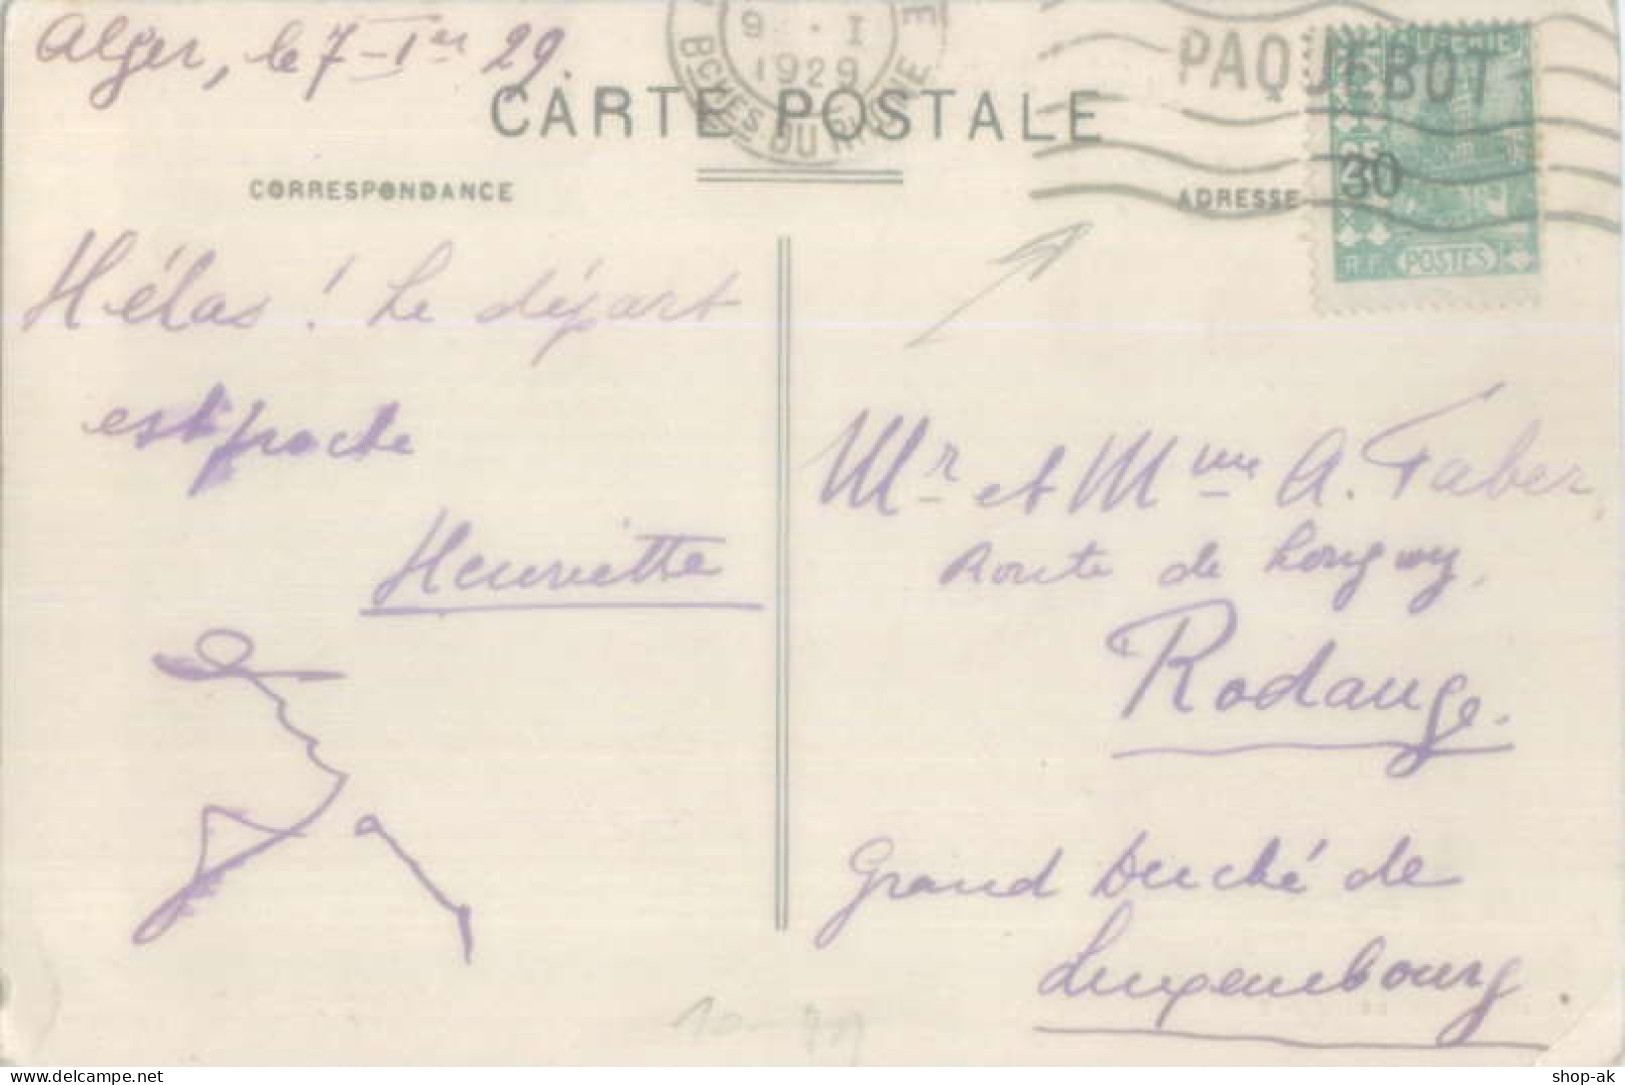 Alger, le 7-Ier 29.
9 · I E
1929
BCHES DU RHONE
PAQUEBOT
CARTE POSTALE
CORRESPONDANCE
ADRESSE
25
30
R.F. POSTES
Hélas ! Le départ
est proche
Henriette
Mr et Mme A. Faber,
Route de Longwy,
Rodange.
Grand Duché de
Luxembourg.
shop-ak